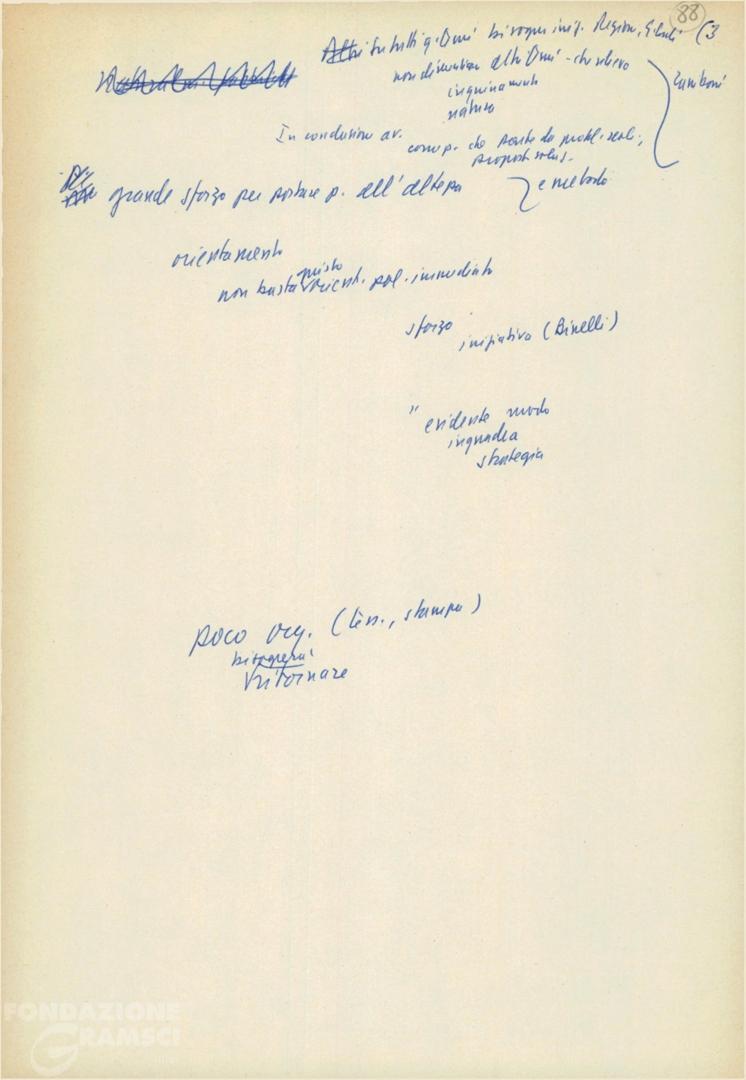 88
(3
Su tutti q. bisogna iniz. Region,
non dimenticare altri - che rilievo
inquinamento
natura
Zamboni
In conclusione av.
comp. che parte da probl. reali,
proposte
grande sforzo per portare p. all'altezza
e metodo
orientamento
non basta giusto orient. pol. immediato
sforzo
iniziativa (Binelli)
" evidente modo
inquadra
strategia
poco org. (tess., stampa)
bisognerà
ritornare
FONDAZIONE
GRAMSCI